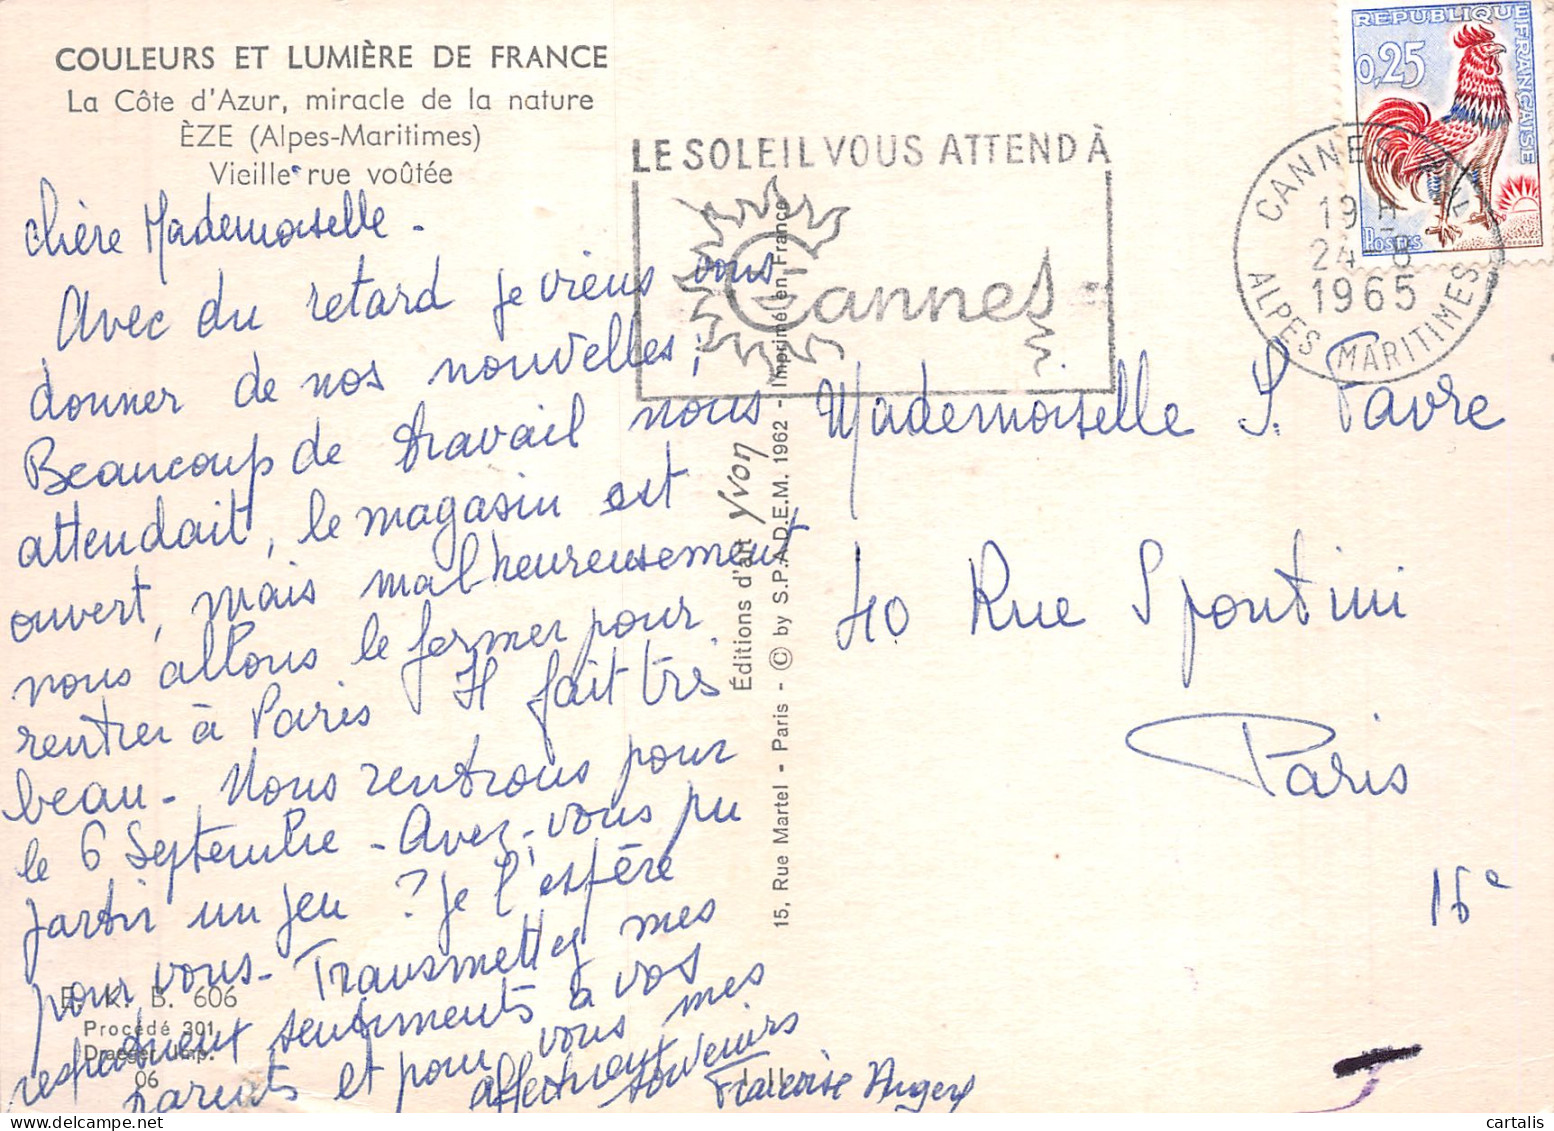 COULEURS ET LUMIÈRE DE FRANCE
La Côte d'Azur, miracle de la nature
ÈZE (Alpes-Maritimes)
Vieille rue voûtée
chère Mademoiselle.
Avec du retard je viens vous
donner de nos nouvelles;
Beaucoup de travail nous
attendait, le magasin est
ouvert, mais malheureusement
nous allons le fermer pour
rentrer à Paris Il fait très
beau - Nous rentrons pour
le 6 Septembre - Avez-vous pu
partir un peu ? Je l'espère
pour vous - Transmettez mes
respectueux sentiments à vos
parents et pour vous mes
affectueux souvenirs
Francoise
E. K. B. 606
Procédé 301
Draeger Imp.
06
LE SOLEIL VOUS ATTEND À
Cannes
Éditions d'art Yvon
15, Rue Martel - Paris - © by S.P.A.D.E.M. 1962 - Imprimé en France
REPUBLIQUE FRANÇAISE
0,25
POSTES
CANNES
19 H
24-8
1965
ALPES MARITIMES
Mademoiselle S. Favre
40 Rue Spontini
Paris
16e
cartalis